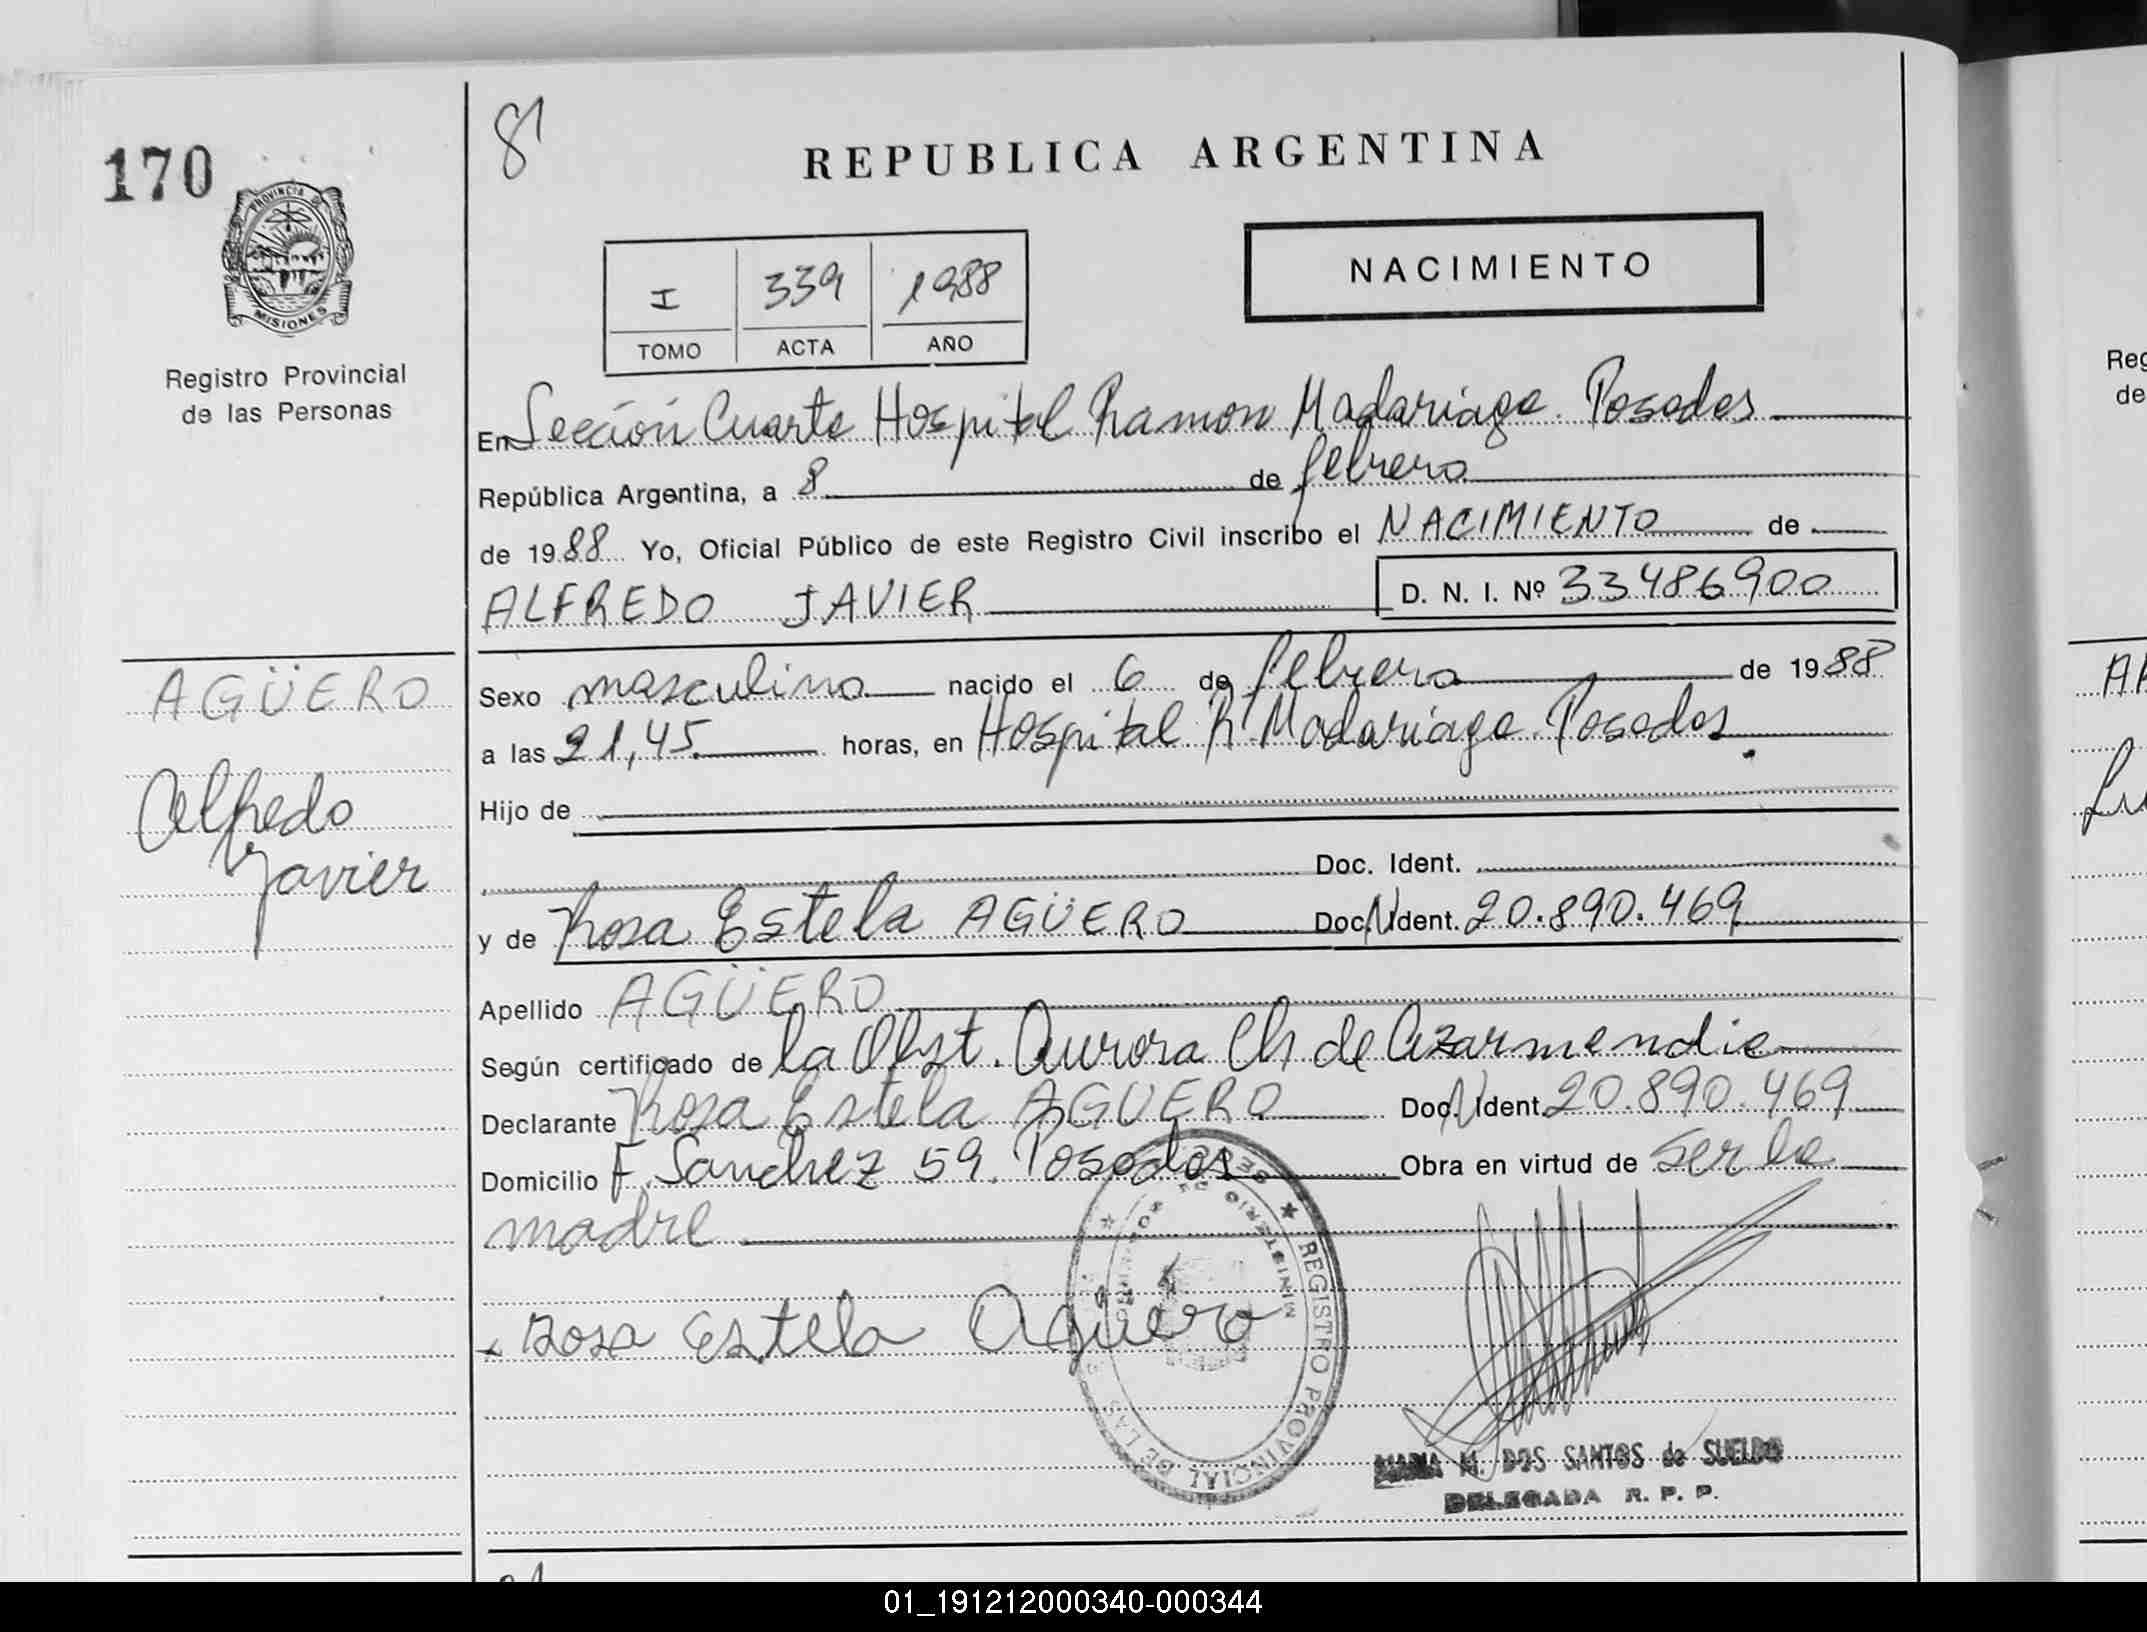 170
81
REPUBLICA ARGENTINA
PROVINCIA DE
MISIONES
Registro Provincial
de las Personas
I 339 1988
TOMO ACTA AÑO
NACIMIENTO
En Sección Cuarta Hospital Ramon Madariaga. Posadas
República Argentina, a 8 de febrero
de 1988 Yo, Oficial Público de este Registro Civil inscribo el NACIMIENTO de
ALFREDO JAVIER D. N. I. Nº 33486900
AGÜERO
Alfredo
Javier
Sexo masculino nacido el 6 de febrero de 1988
a las 21,45 horas, en Hospital R. Madariaga. Posadas
Hijo de
Doc. Ident.
y de Rosa Estela AGÜERO Doc. N Ident. 20.890.469
Apellido AGÜERO
Según certificado de la Obst. Aurora Ch de Azarmendia
Declarante Rosa Estela AGUERO Doc. N Ident. 20.890.469
Domicilio F. Sanchez 59. Posadas Obra en virtud de ser la
madre
Rosa Estela Agüero
REGISTRO PROVINCIAL DE LAS
MINISTERIO DE
MARIA M. DOS SANTOS de SUELDO
DELEGADA R. P. P.
Reg
de
01_191212000340-000344